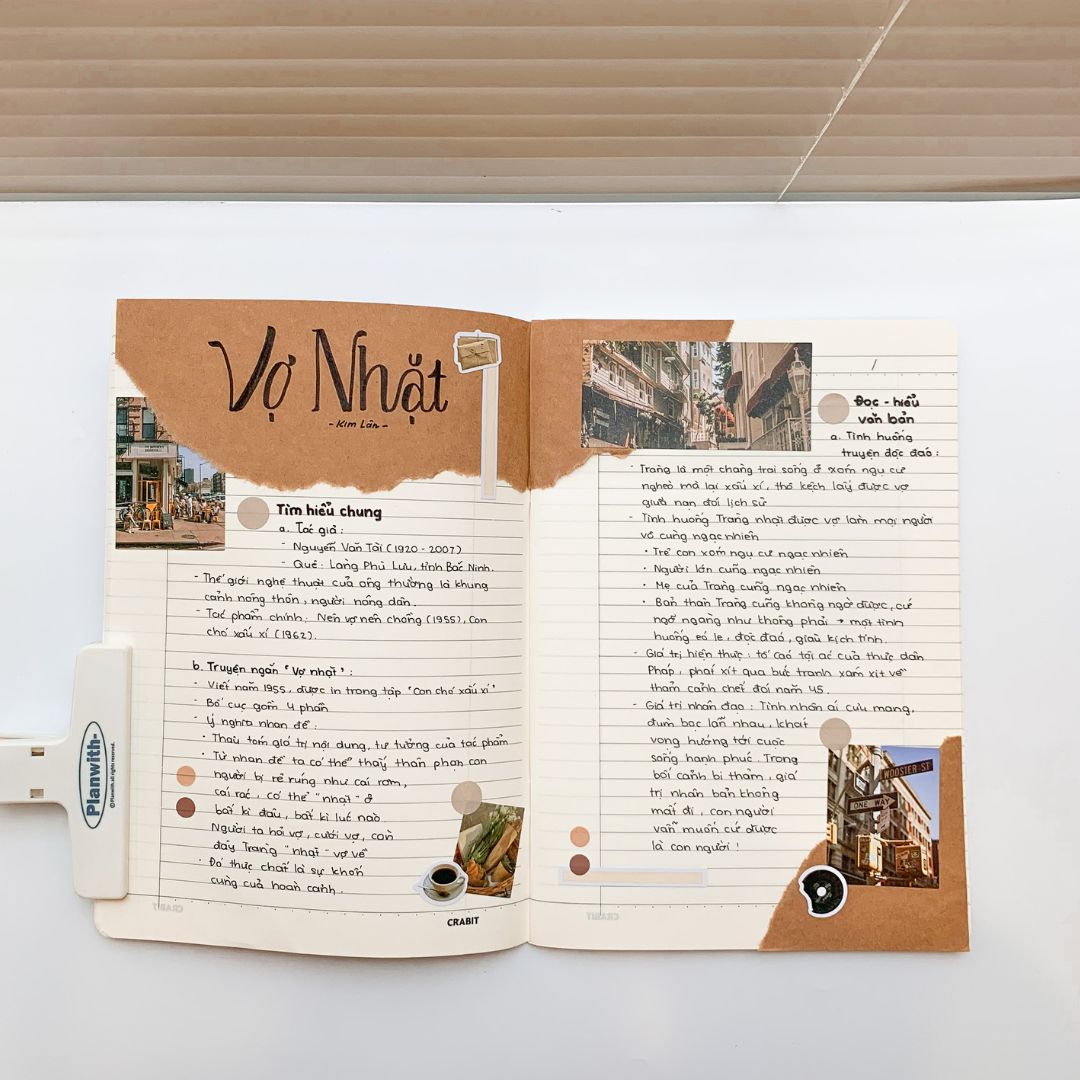 Vợ Nhặt
- Kim Lân -
Tìm hiểu chung
a. Tác giả :
- Nguyễn Văn Tài (1920 - 2007)
- Quê : Làng Phù Lưu, tỉnh Bắc Ninh.
- Thế giới nghệ thuật của ông thường là khung
cảnh nông thôn, người nông dân.
- Tác phẩm chính : Nên vợ nên chồng (1955), Con
chó xấu xí (1962).
b. Truyện ngắn "Vợ nhặt" :
- Viết năm 1955, được in trong tập "Con chó xấu xí"
- Bố cục gồm 4 phần
- Ý nghĩa nhan đề :
• Thâu tóm giá trị nội dung, tư tưởng của tác phẩm
• Từ nhan đề ta có thể thấy thân phận con
người bị rẻ rúng như cái rơm,
cái rác, có thể "nhặt" ở
bất kì đâu, bất kì lúc nào
Người ta hỏi vợ, cưới vợ, còn
đây Tràng "nhặt" vợ về
• Đó thực chất là sự khốn
cùng của hoàn cảnh.
CRABIT
Planwith-
© Planwith all rights reserved.
/
Đọc - hiểu
văn bản
a. Tình huống
truyện độc đáo :
- Tràng là một chàng trai sống ở xóm ngụ cư
nghèo mà lại xấu xí, thô kệch lấy được vợ
giữa nạn đói lịch sử
- Tình huống Tràng nhặt được vợ làm mọi người
vô cùng ngạc nhiên
• Trẻ con xóm ngụ cư ngạc nhiên
• Người lớn cũng ngạc nhiên
• Mẹ của Tràng cũng ngạc nhiên
• Bản thân Tràng cũng không ngờ được, cứ
ngỡ ngàng như không phải → một tình
huống éo le, độc đáo, giàu kịch tính.
- Giá trị hiện thực : tố cáo tội ác của thực dân
Pháp, phát xít qua bức tranh xám xịt về
thảm cảnh chết đói năm 45.
- Giá trị nhân đạo : Tình nhân ái cưu mang,
đùm bọc lẫn nhau, khát
vọng hướng tới cuộc
sống hạnh phúc. Trong
bối cảnh bi thảm, giá
trị nhân bản không
mất đi, con người
vẫn muốn cứ được
là con người !
WOOSTER ST
ONE WAY
CRABIT
CRABIT